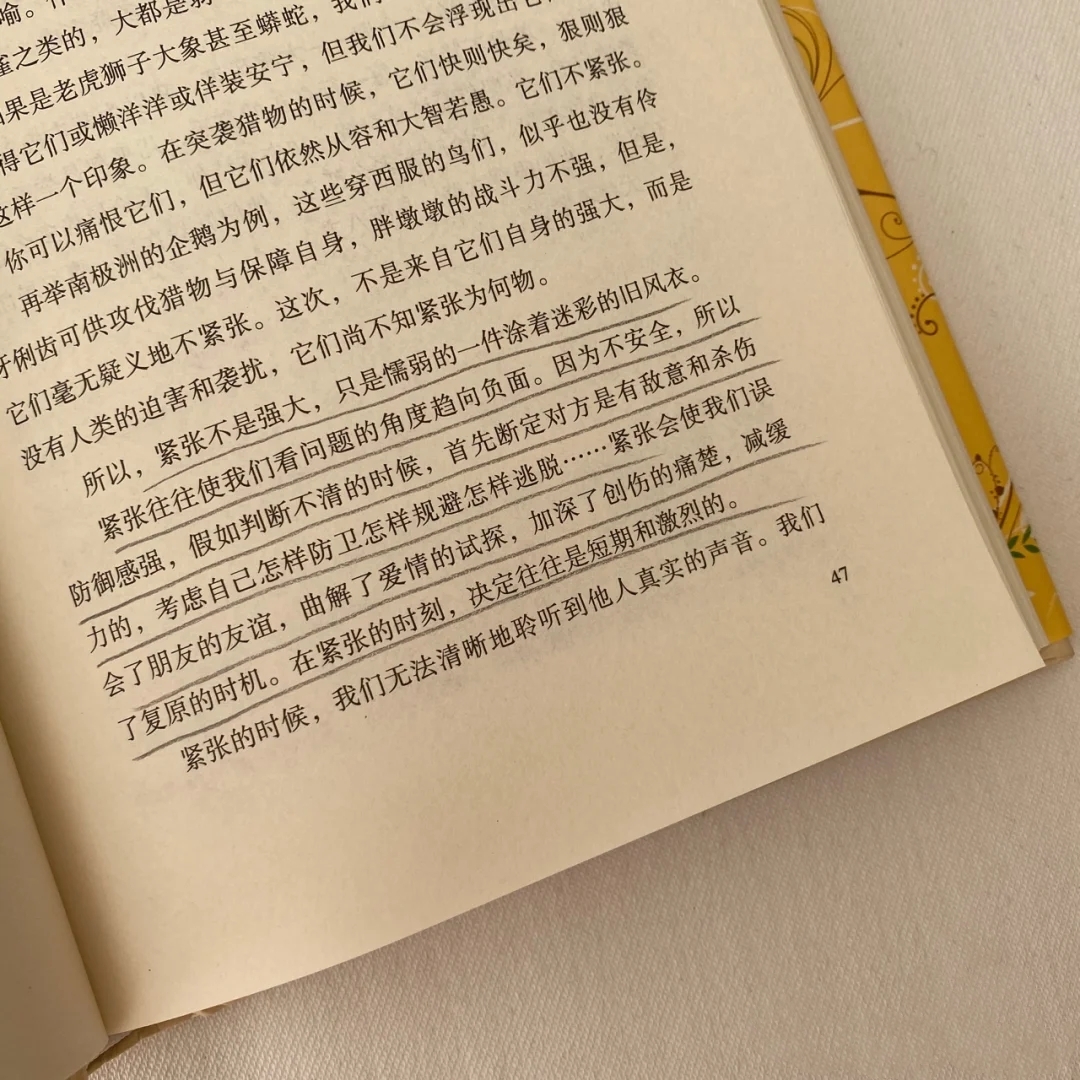 喻。
雀之类的，大都是弱
如果是老虎狮子大象甚至蟒蛇，我们
得它们或懒洋洋或佯装安宁，但我们不会浮现出它
这样一个印象。在突袭猎物的时候，它们快则快矣，狠则狠
你可以痛恨它们，但它们依然从容和大智若愚。它们不紧张。
再举南极洲的企鹅为例，这些穿西服的鸟们，似乎也没有伶
牙俐齿可供攻伐猎物与保障自身，胖墩墩的战斗力不强，但是，
它们毫无疑义地不紧张。这次，不是来自它们自身的强大，而是
没有人类的迫害和袭扰，它们尚不知紧张为何物。
所以，紧张不是强大，只是懦弱的一件涂着迷彩的旧风衣。
紧张往往使我们看问题的角度趋向负面。因为不安全，所以
防御感强，假如判断不清的时候，首先断定对方是有敌意和杀伤
力的，考虑自己怎样防卫怎样规避怎样逃脱……紧张会使我们误
会了朋友的友谊，曲解了爱情的试探，加深了创伤的痛楚，减缓
了复原的时机。在紧张的时刻，决定往往是短期和激烈的。
紧张的时候，我们无法清晰地聆听到他人真实的声音。我们
47